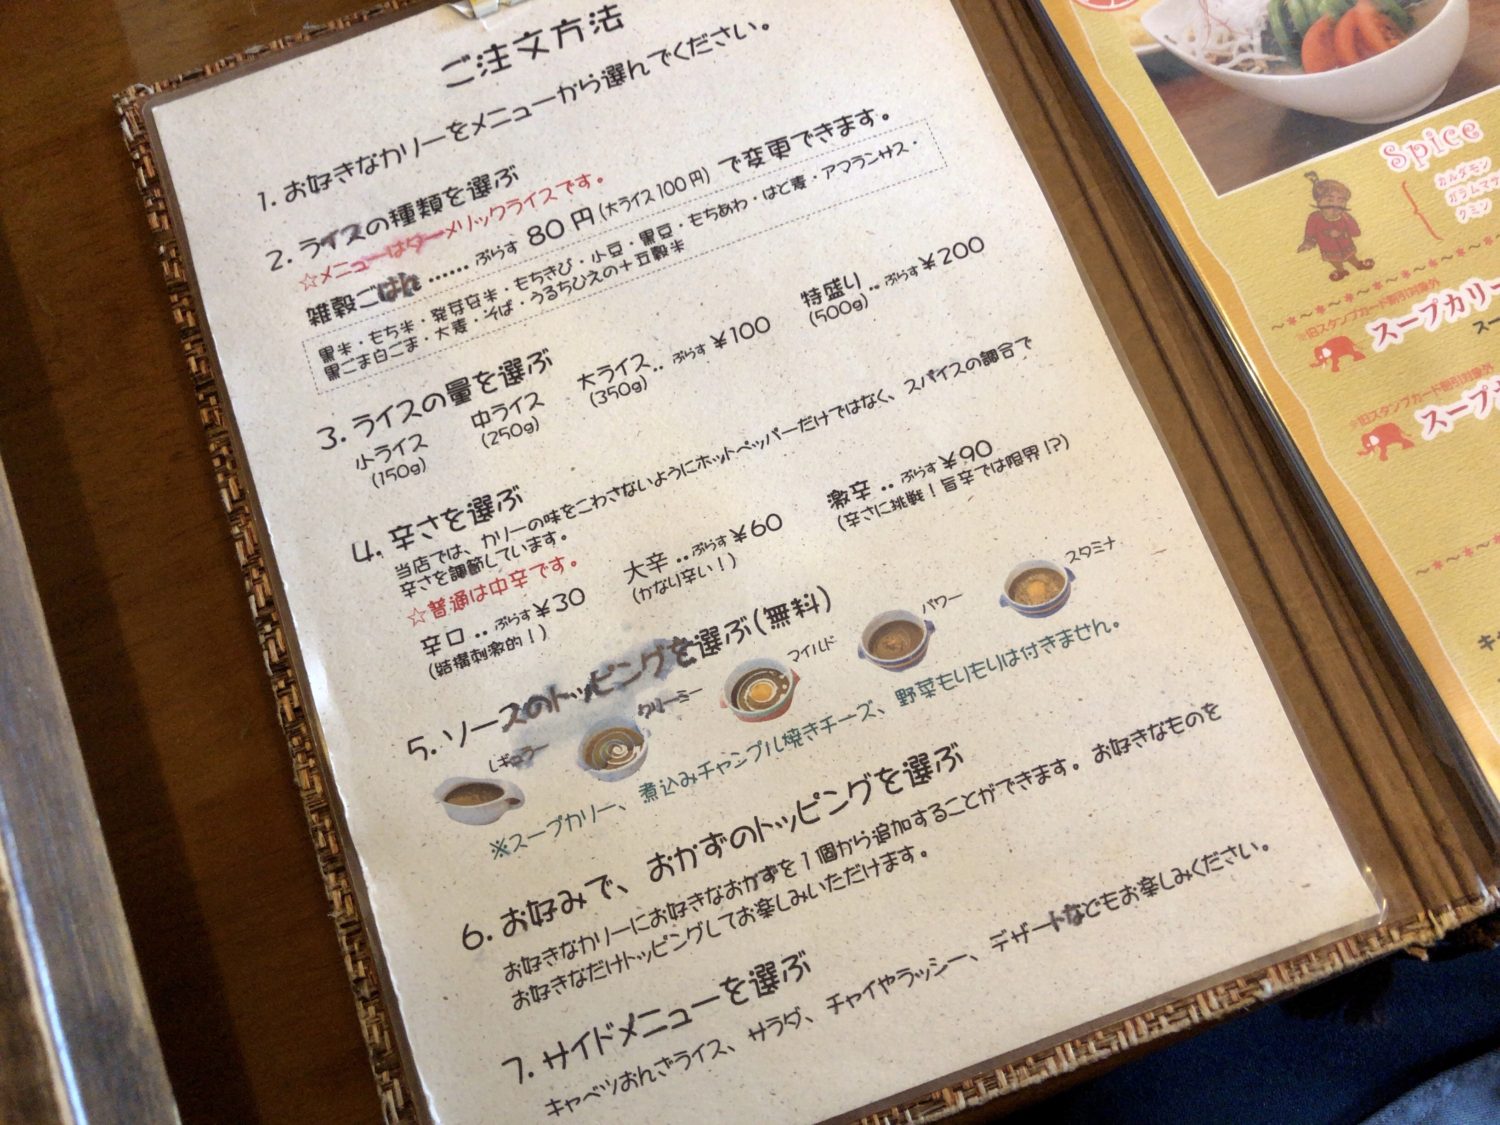 ご注文方法
1. お好きなカリーをメニューから選んでください。
2. ライスの種類を選ぶ
☆メニューはターメリックライスです。
雑穀ごはん …… ぷらす 80円(大ライス100円) で変更できます。
黒米・もち米・発芽玄米・もちきび・小豆・黒豆・もちあわ・はと麦・アマランサス・
黒ごま白ごま・大麦・そば・うるちひえの十五穀米
3. ライスの量を選ぶ
小ライス 中ライス 大ライス‥ぷらす¥100 特盛り‥ぷらす¥200
(150g) (250g) (350g) (500g)
4. 辛さを選ぶ
当店では、カリーの味をこわさないようにホットペッパーだけではなく、スパイスの調合で
辛さを調節しています。
☆普通は中辛です。
辛口‥ぷらす¥30 大辛‥ぷらす¥60 激辛‥ぷらす¥90
(結構刺激的!) (かなり辛い!) (辛さに挑戦!旨辛では限界!?)
5. ソースのトッピングを選ぶ(無料)
レギュラー クリーミー マイルド パワー スタミナ
※スープカリー、煮込みチャンプル焼きチーズ、野菜もりもりは付きません。
6. お好みで、おかずのトッピングを選ぶ
お好きなカリーにお好きなおかずを1個から追加することができます。お好きなものを
お好きなだけトッピングしてお楽しみいただけます。
7. サイドメニューを選ぶ
キャベツおんざライス、サラダ、チャイやラッシー、デザートなどもお楽しみください。
Spice
カルダモン
ガラムマサ
クミン
※旧スタンプカード割引対象外
スープカリー
スー
※旧スタンプカード割引対象外
スープ
キ